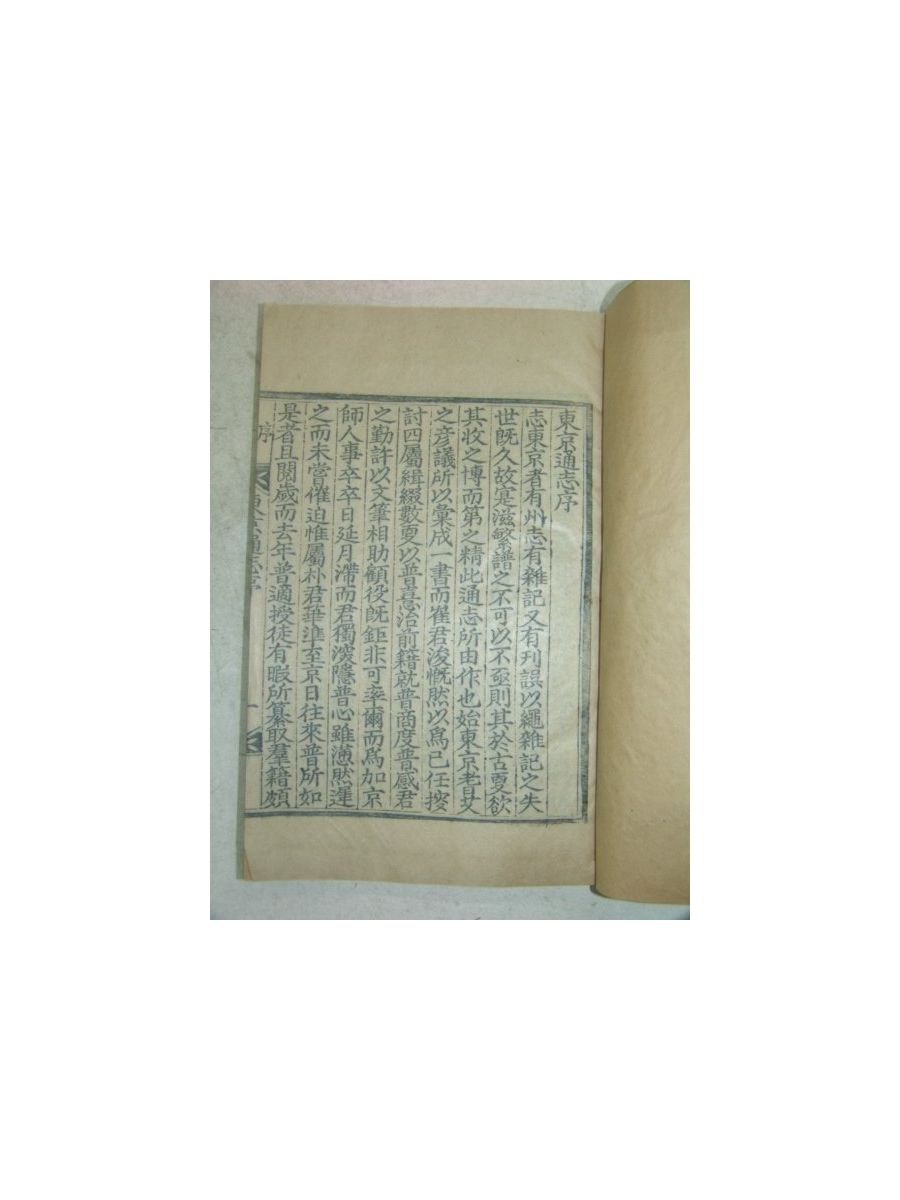 東京通志序
志東京者有州志有雜記又有刊誤以繩雜記之失
世既久故寔滋繁譜之不可以不亟則其於古更欲
其收之博而第之精此通志所由作也始東京耆艾
之彦議所以彙成一書而崔君浚慨然以爲己任搜
討四屬緝綴數更以普憙治前籍就普商度普感君
之勤許以文筆相助顧役既鉅非可率爾而爲加京
師人事卒卒日延月滯而君獨深隱普心雖懣然遲
之而未嘗催迫惟屬朴君華準至京日往來普所如
是者且閱歲而去年普適授徒有暇所纂取羣籍頗
序
東京通志序
一